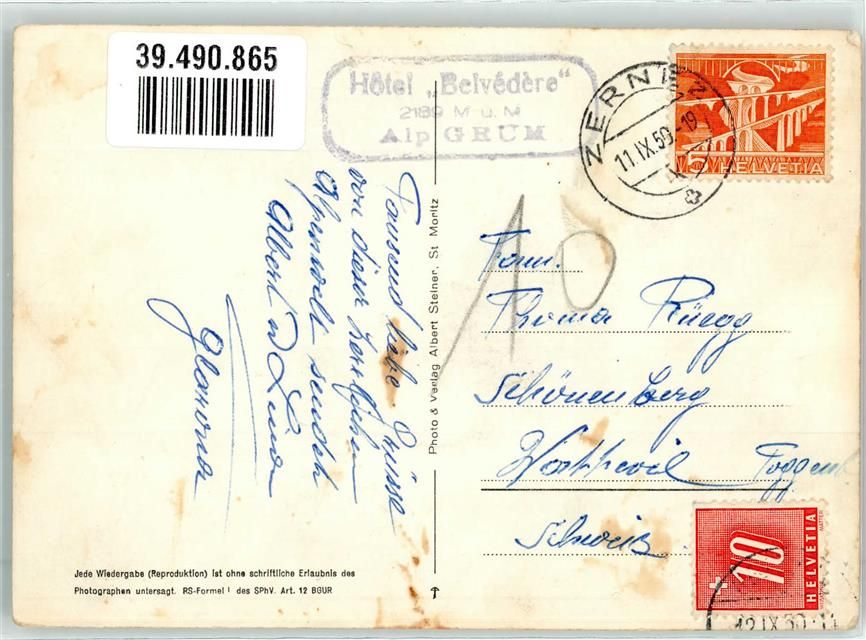 39.490.865
Hôtel „Belvédère"
2189 M ü. M
Alp GRÜM
ZERNEZ
11.IX.50.-19
5 HELVETIA
Tausend liebe Grüsse
von dieser herrlichen
Alpenwelt senden
Albert u Lina
Photo & Verlag Albert Steiner, St Moritz
10
Fam.
Thoma Rüegg
Schönenberg
Wattwil Toggenb
Schweiz
10
HELVETIA
12 IX 50-11
Jede Wiedergabe (Reproduktion) ist ohne schriftliche Erlaubnis des
Photographen untersagt. RS-Formel des SPhV. Art. 12 BGUR